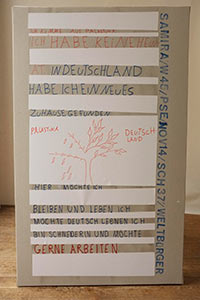 ICH HABE KEINE
IN DEUTSCHLAND
HABE ICH EIN NEUES
ZUHAUSE GEFUNDEN
PALÄSTINA
DEUTSCH
LAND
HIER MÖCHTE ICH
BLEIBEN UND LEBEN ICH
MÖCHTE DEUTSCH LERNEN ICH
BIN SCHNEIDERIN UND MÖCHTE
GERNE ARBEITEN
SAMIRA/W45/PSE/NOV14/SCH37/WELTBÜRGER